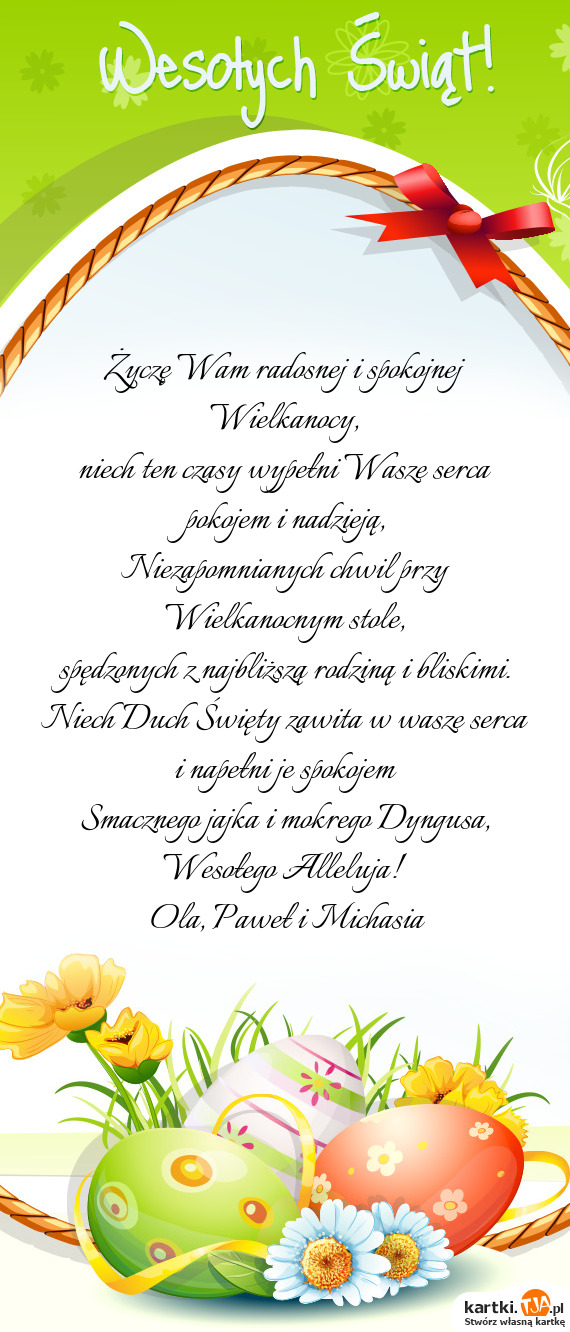 Wesołych Świąt!
Życzę Wam radosnej i spokojnej
Wielkanocy,
niech ten czasy wypełni Wasze serca
pokojem i nadzieją,
Niezapomnianych chwil przy
Wielkanocnym stole,
spędzonych z najbliższą rodziną i bliskimi.
Niech Duch Święty zawita w wasze serca
i napełni je spokojem
Smacznego jajka i mokrego Dyngusa,
Wesołego Alleluja!
Ola, Paweł i Michasia
kartki.TJA.pl
Stwórz własną kartkę